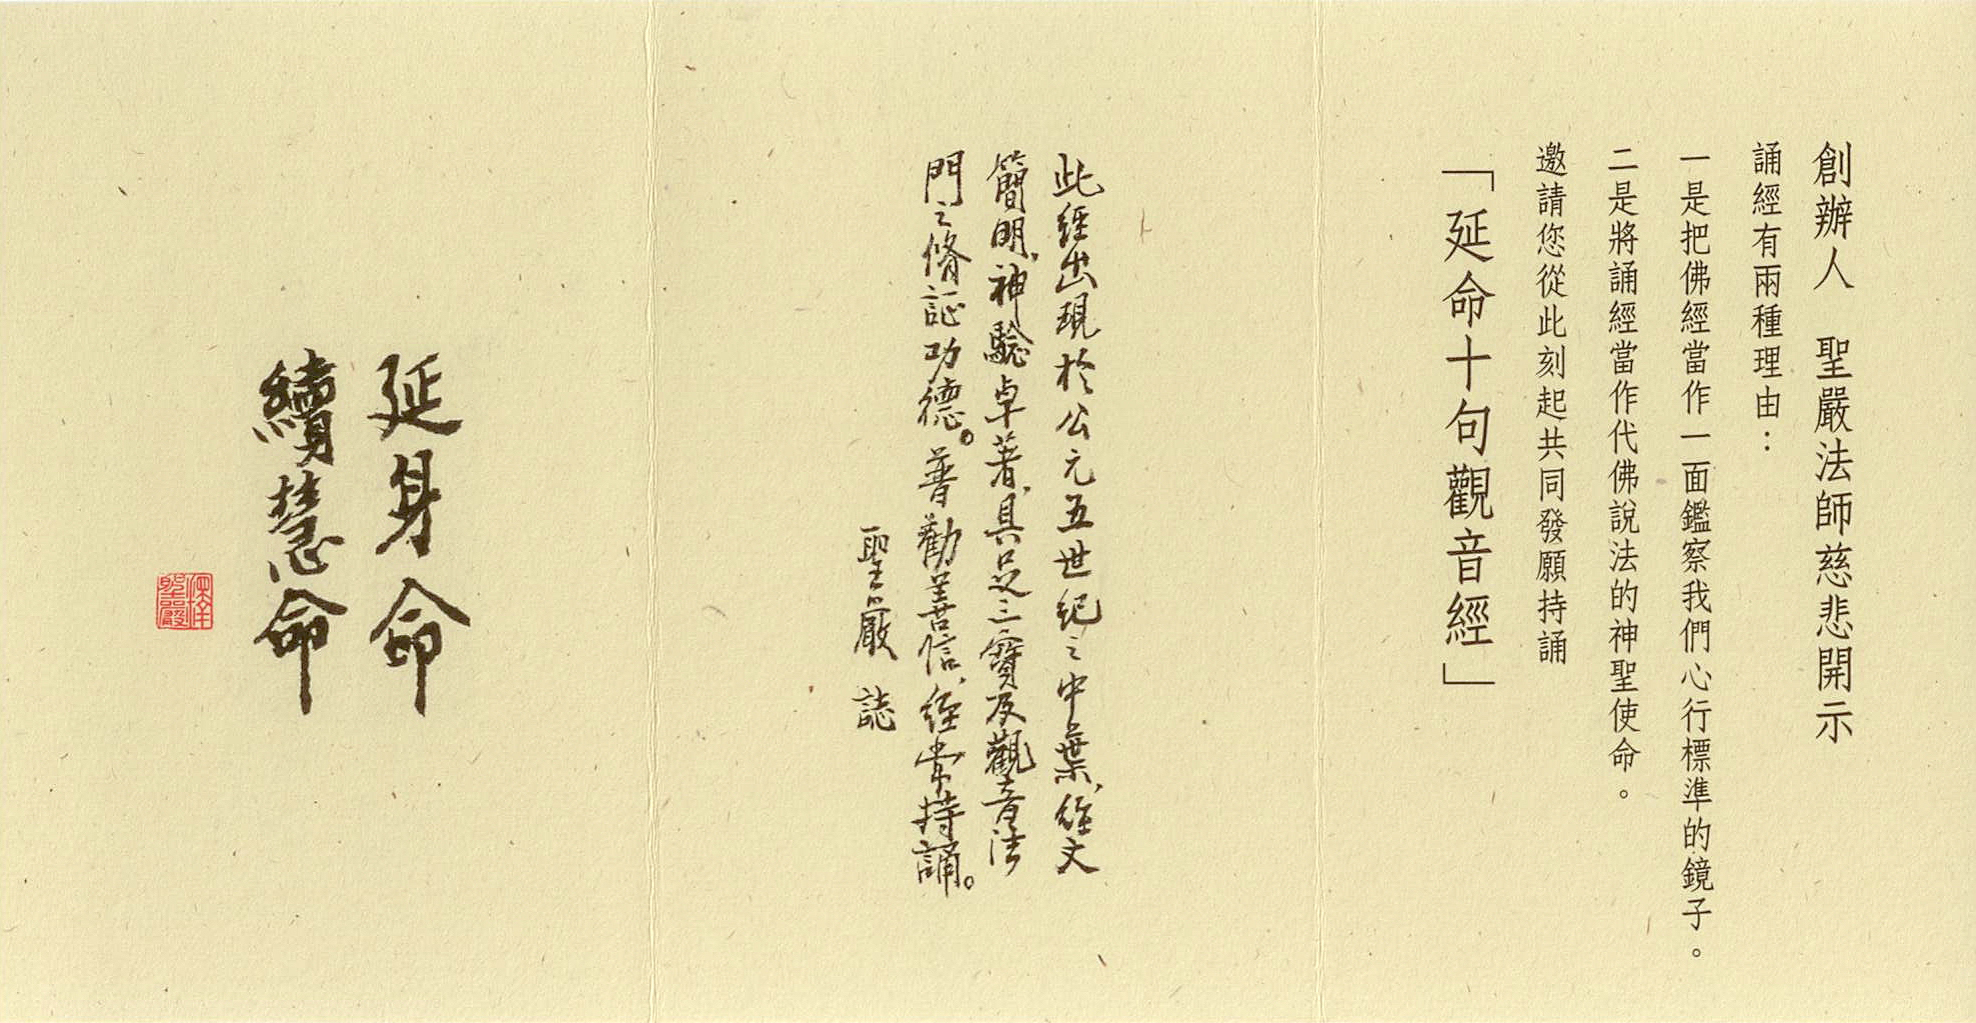 創辦人　聖嚴法師慈悲開示
誦經有兩種理由：
一是把佛經當作一面鑑察我們心行標準的鏡子。
二是將誦經當作代佛說法的神聖使命。
邀請您從此刻起共同發願持誦
「延命十句觀音經」
此經出現於公元五世紀之中葉、經文
簡明、神驗卓著、具足三寶及觀音法
門之脩証功德。普勸善信、經常持誦。
聖嚴 誌
延身命
續慧命